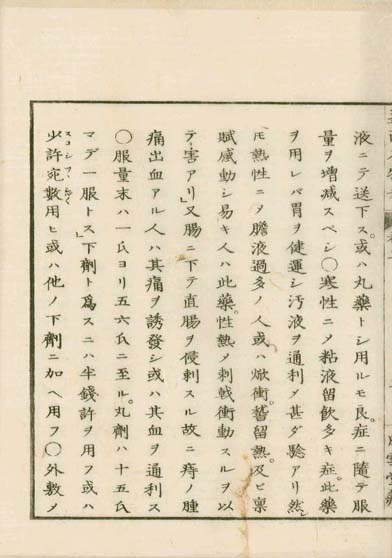 液ニテ送下ス。或ハ丸藥トシ用ルモ良。症ニ隨テ服
量ヲ增減スベシ〇寒性ニメ粘液留飲多キ症。此藥
ヲ用レバ胃ヲ健運シ汚液ヲ通利メ甚ダ驗アリ然
𪜈熱性ニメ膽液過多ノ人或ハ焮衝。蓄留熱。及ヒ稟
賦感動シ易キ人ハ此藥。性熱メ刺戟衝動スルヲ以
テ害アリ」又腸ニ下テ直腸ヲ侵刺スル故ニ痔ノ腫
痛出血アル人ハ其痛ヲ誘發シ或ハ其血ヲ通利ス
〇服量末ハ一氏ヨリ五六氏ニ至ル。丸劑ハ十五氏
マデ一服トス」下劑ト爲スニハ半錢許ヲ用フ或ハ
少許宛數用ヒ或ハ他ノ下劑ニ加ヘ用フ〇外敷メ